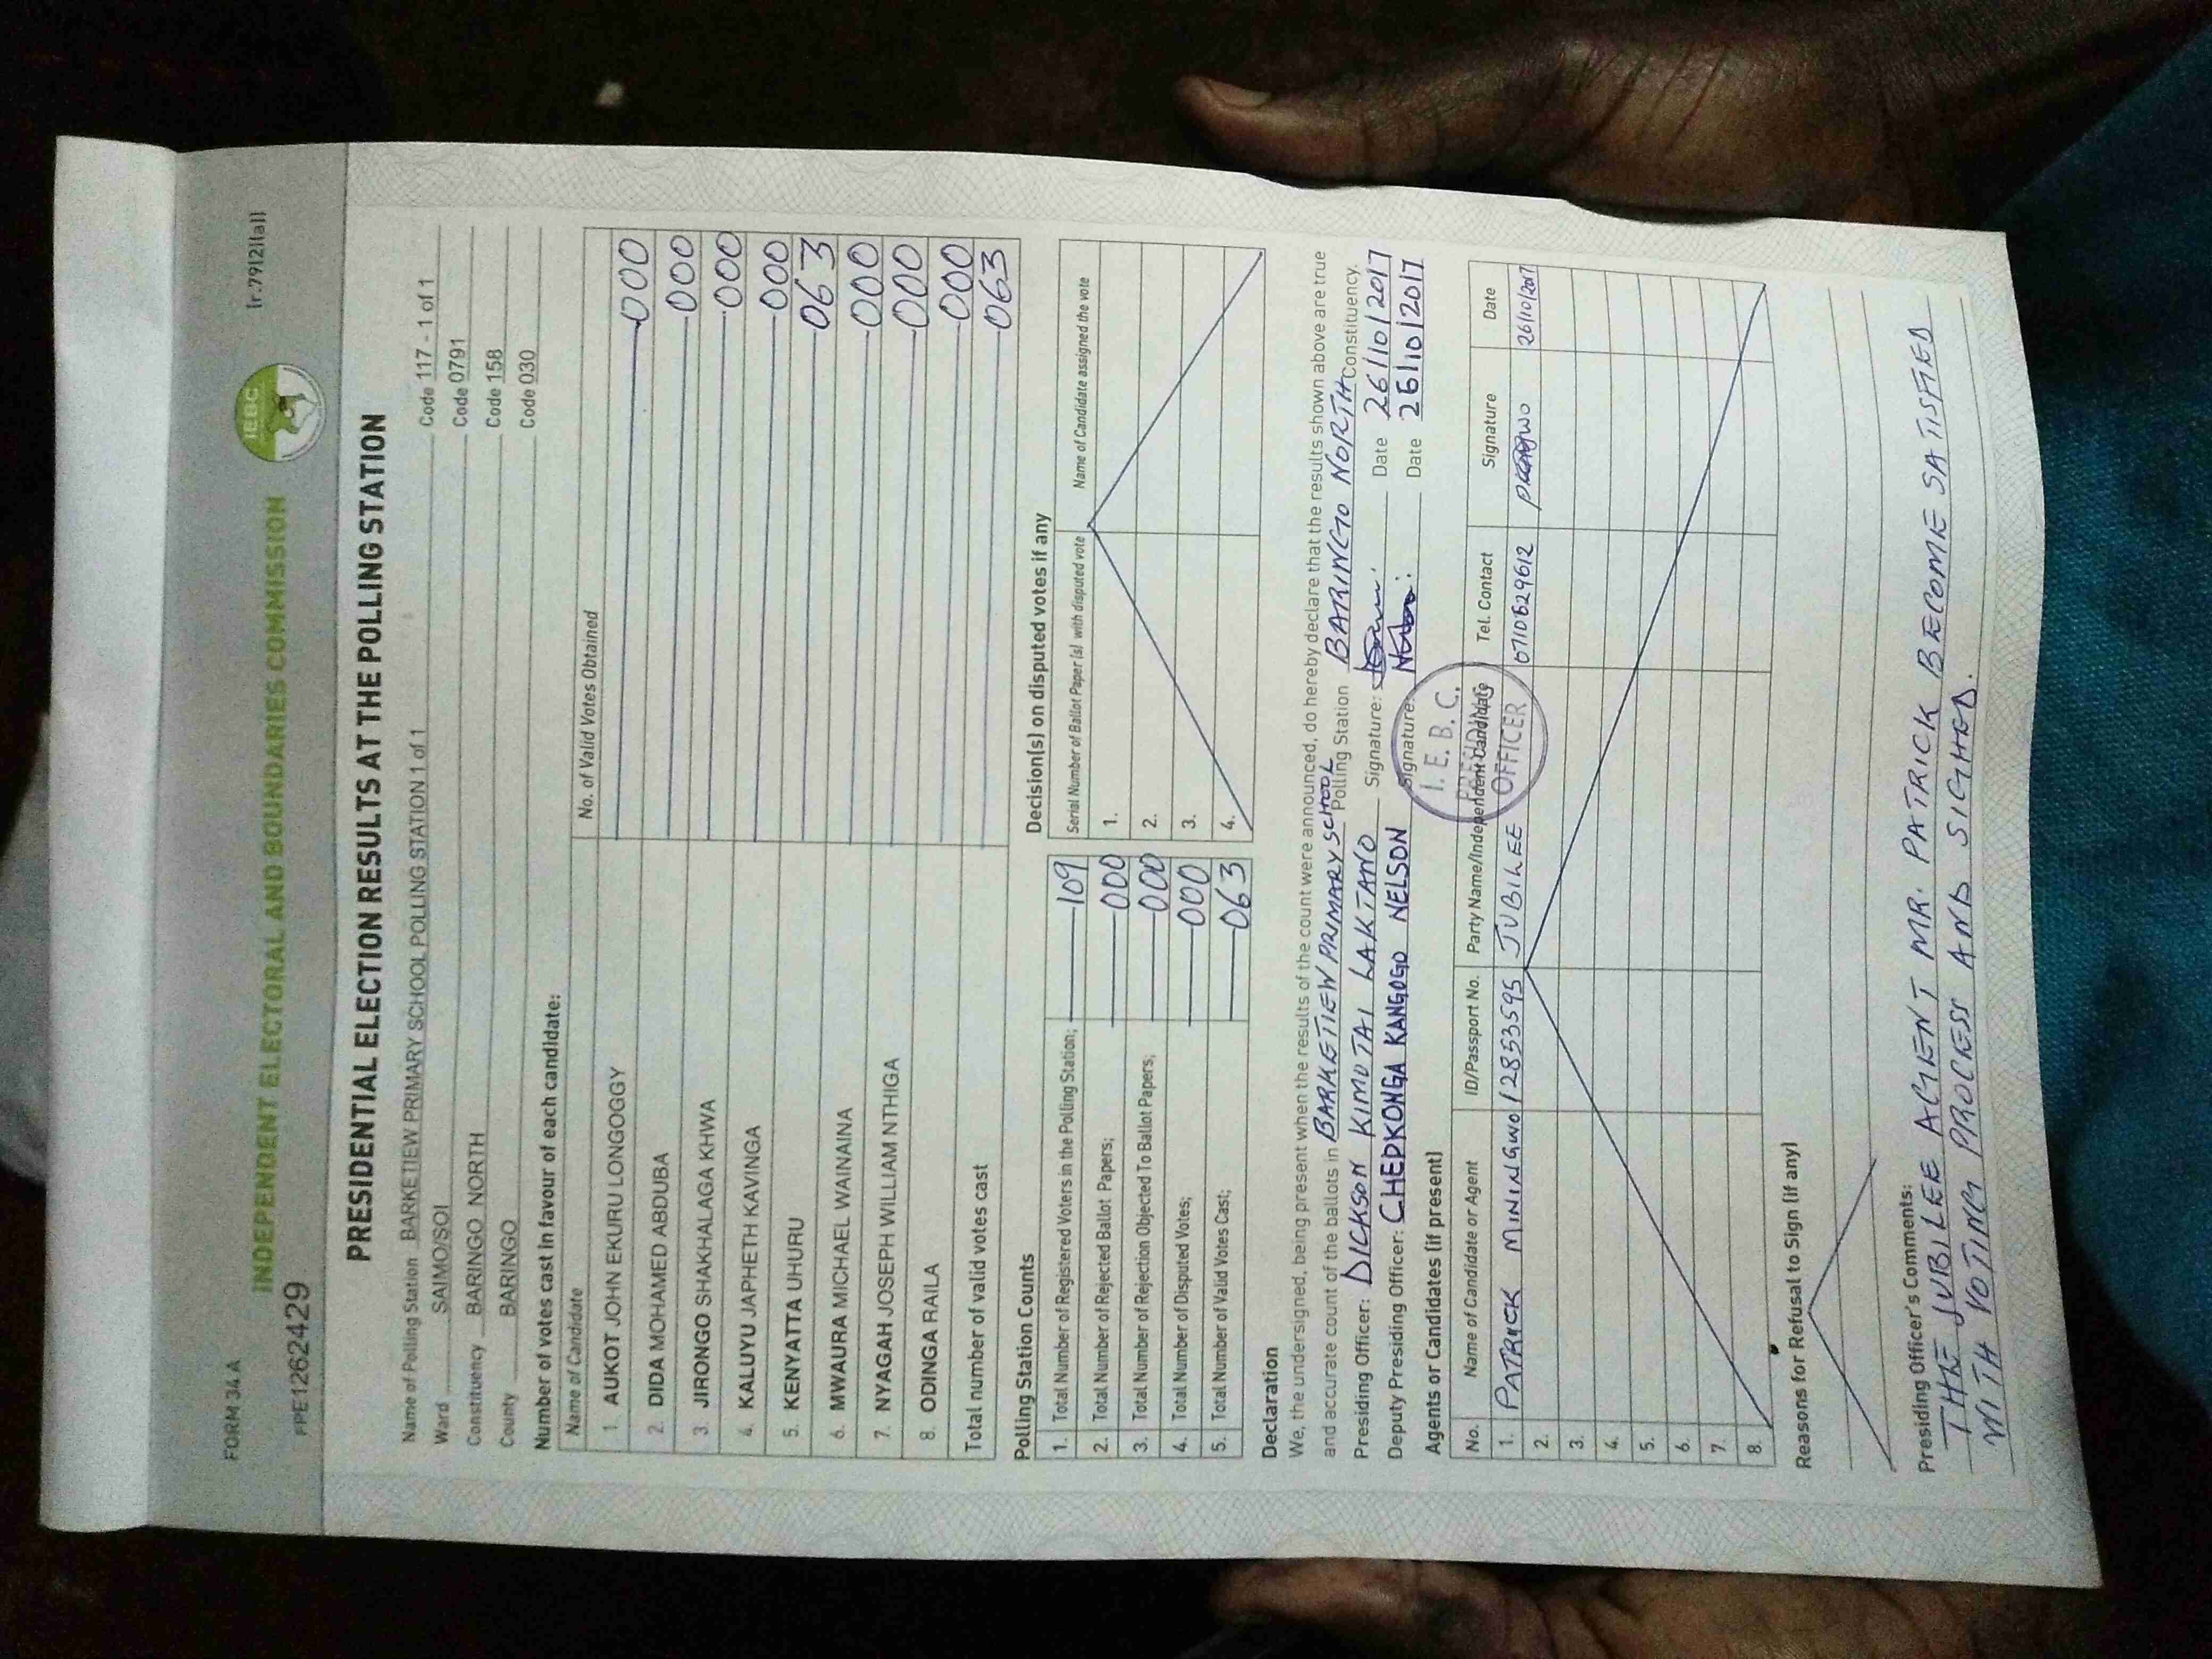 FORM 34 A
(r.79(2)(a))
INDEPENDENT ELECTORAL AND BOUNDARIES COMMISSION
IEBC
PPE1262429
PRESIDENTIAL ELECTION RESULTS AT THE POLLING STATION
Name of Polling Station BARKETIEW PRIMARY SCHOOL POLLING STATION 1 of 1 Code 117 - 1 of 1
Ward SAIMO/SOI Code 0791
Constituency BARINGO NORTH Code 158
County BARINGO Code 030
Number of votes cast in favour of each candidate:
Name of Candidate No. of Valid Votes Obtained
1. AUKOT JOHN EKURU LONGOGGY 000
2. DIDA MOHAMED ABDUBA 000
3. JIRONGO SHAKHALAGA KHWA 000
4. KALUYU JAPHETH KAVINGA 000
5. KENYATTA UHURU 063
6. MWAURA MICHAEL WAINAINA 000
7. NYAGAH JOSEPH WILLIAM NTHIGA 000
8. ODINGA RAILA 000
Total number of valid votes cast 063
Polling Station Counts
1. Total Number of Registered Voters in the Polling Station; 109
2. Total Number of Rejected Ballot Papers; 000
3. Total Number of Rejection Objected To Ballot Papers; 000
4. Total Number of Disputed Votes; 000
5. Total Number of Valid Votes Cast; 063
Decision(s) on disputed votes if any
Serial Number of Ballot Paper (s) with disputed vote Name of Candidate assigned the vote
1.
2.
3.
4.
Declaration
We, the undersigned, being present when the results of the count were announced, do hereby declare that the results shown above are true
and accurate count of the ballots in BARKETIEW PRIMARY SCHOOL Polling Station BARINGO NORTH Constituency.
Presiding Officer: DICKSON KIMUTAI LAKTANO Signature: Date 26/10/2017
Deputy Presiding Officer: CHEPKONGA KANGOGO NELSON Signature: Date 26/10/2017
I.E.B.C.
PRESIDING
OFFICER
Agents or Candidates (if present)
No. Name of Candidate or Agent ID/Passport No. Party Name/Independent Candidate Tel. Contact Signature Date
1. PATRICK MININGWO 12853595 JUBILEE 0710629612 26/10/2017
2.
3.
4.
5.
6.
7.
8.
Reasons for Refusal to Sign (if any)
Presiding Officer's Comments:
THE JUBILEE AGENT MR. PATRICK BECOME SATISFIED
WITH VOTING PROCESS AND SIGNED.